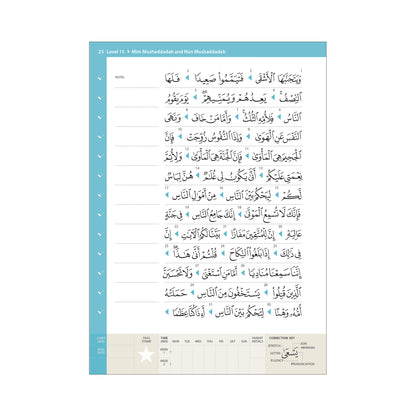 25 Level 13 ▸ Mīm Mushaddadah and Nūn Mushaddadah
NOTES
وَيَتَجَنَّبُهَا الْأَشْقَى ◂ فَتَيَمَّمُوا صَعِيدًا ◂ فَلَهَا
النِّصْفُ ◂ يَعِدُهُمْ وَيُمَنِّيهِمْ ◂ يَوْمَ يَقُومُ
النَّاسُ ◂ فَلِأُمِّهِ الثُّلُثُ ◂ وَأَمَّا مَنْ خَافَ ◂ وَنَهَى
النَّفْسَ عَنِ الْهَوَى ◂ وَإِذَا النُّفُوسُ زُوِّجَتْ ◂ فَإِنَّ
الْجَحِيمَ هِيَ الْمَأْوَى ◂ فَإِنَّ الْجَنَّةَ هِيَ الْمَأْوَى ◂ وَلِأُتِمَّ
نِعْمَتِي عَلَيْكُمْ ◂ أَنَّى يَكُونُ لِي غُلَامٌ ◂ هُنَّ لِبَاسٌ
لَكُمْ ◂ لِيَحْكُمَ بَيْنَ النَّاسِ ◂ مِنْ أَمْوَالِ النَّاسِ
فَإِنَّكَ لَا تُسْمِعُ الْمَوْتَى ◂ إِنَّكَ جَامِعُ النَّاسِ ◂ فِي جَنَّةٍ
عَالِيَةٍ ◂ إِنَّ لِلْمُتَّقِينَ مَفَازًا ◂ بَيَّنَّا لَكُمُ الْآيَاتِ ◂ إِنَّ
فِي ذَلِكَ ◂ إِذَا بَلَغُوا النِّكَاحَ ◂ قُلْتُمْ أَنَّى هَذَا ◂
إِنَّنَا سَمِعْنَا مُنَادِيًا ◂ أَمَّا مَنِ اسْتَغْنَى ◂ وَلَا تَحْسَبَنَّ
الَّذِينَ قُتِلُوا ◂ يَسْتَخْفُونَ مِنَ النَّاسِ ◂ حَمَلَتْهُ
أُمُّهُ وَهْنًا ◂ لِيَحْكُمَ بَيْنَ النَّاسِ ◂ أَءِذَا كُنَّا عِظَامًا ◂
START DATE
PAGE STARS
TIME MON TUE WED THU FRI SAT SUN PARENT INITIALS
WEEK 1
WEEK 2
CORRECTION KEY
STRETCH
LETTER
FLUENCY
يَسْعَى
PRONUNCIATION